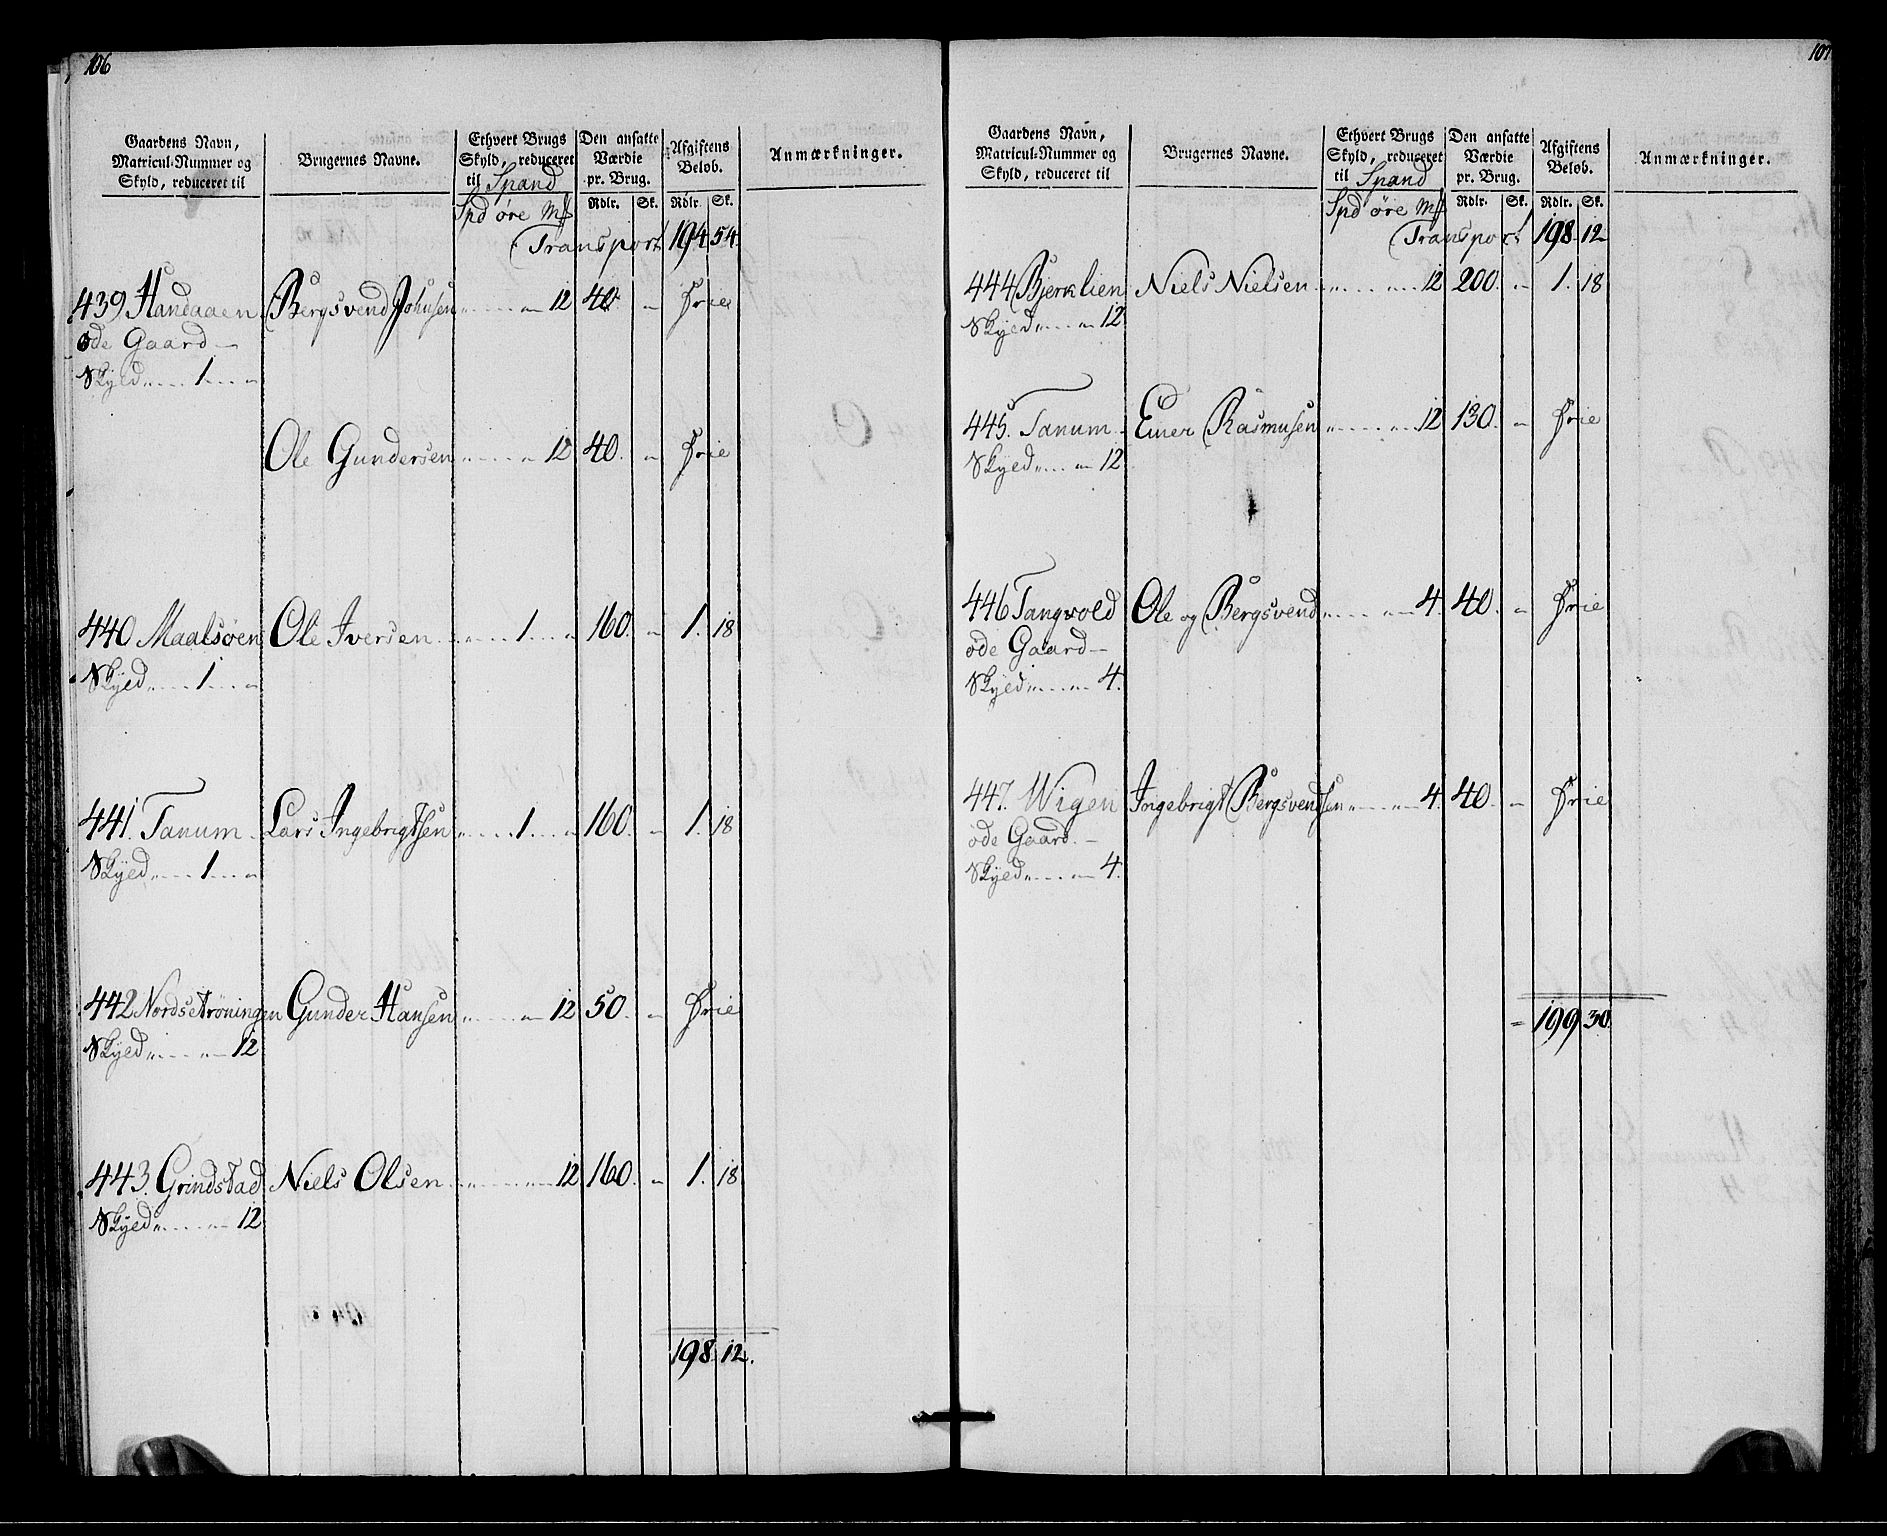 106
Gaardens Navn, Matricul-Nummer og Skyld, reduceret til
Brugernes Navne.
Ethvert Brugs Skyld, reduceret til Spand
Den ansatte Værdie pr. Brug.
Afgiftens Beløb.
Anmærkninger.
Spd øre Mß Rdlr. Sk. Rdlr. Sk.
Transport 194 54
439 Handaaen Bergsvend Johnsen „ „ 12 40 „ Frie
øde Gaard
Skyed „ 1 „
Ole Gundersen „ „ 12 40. „ Frie
440 Maalsøen Ole Iversen „ 1 „ 160. „ 1. 18
Skyed „ 1 „
441. Tanum Lars Ingebrigtsen „ 1 „ 160. „ 1. 18
Skyed „ 1 „
442 Nordsetrøningen Gunder Hansen „ „ 12 50. „ Frie
Skyed „ „ 12
443. Grindstad Niels Olsen „ „ 12 160. „ 1. 18
Skyed „ „ 12
198 12.
107
Gaardens Navn, Matricul-Nummer og Skyld, reduceret til
Brugernes Navne.
Ethvert Brugs Skyld, reduceret til Spand
Den ansatte Værdie pr. Brug.
Afgiftens Beløb.
Anmærkninger.
Spd øre Mß Rdlr. Sk. Rdlr. Sk.
Transport 198 12
444 Bjerklien Niels Nielsen „ „ 12 200. „ 1. 18
Skyed „ „ 12
445. Tanum Einer Rasmusen „ „ 12 130. „ Frie
Skyed „ „ 12
446 Tangvold Ole og Bergsvend „ „ 4. 40. „ Frie
øde Gaard
Skyed „ „ 4.
447. Wigen Ingebrigt Bergsvendsen „ „ 4. 40. „ Frie
øde Gaard.
Skyed „ „ 4.
199 30